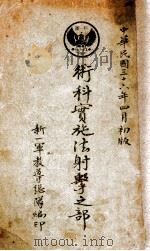 中華民國三十六年四月初版
術科實施法射擊之部
新一軍教導總隊編印